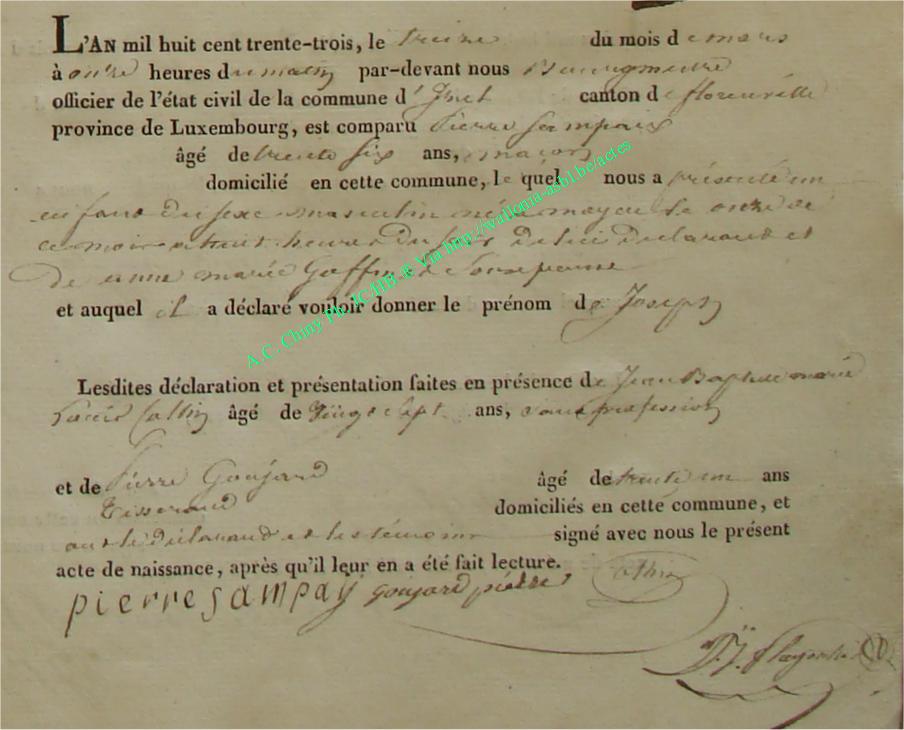 L'AN mil huit cent trente-trois, le treize du mois de mars
à onze heures du matin par-devant nous Bourgmestre
officier de l'état civil de la commune d' canton de florenville
province de Luxembourg, est comparu Pierre Sampaux
âgé de trente six ans, maçon
domicilié en cette commune, le quel nous a présenté un
enfant du sexe masculin né le onze de
ce mois a huit heures du soir de lui déclarant et
de anne marie Goffinet son epouse
et auquel il a déclaré vouloir donner le prénom de Joseph
Lesdites déclaration et présentation faites en présence de Jean Baptiste marie
Collin âgé de vingt sept ans, sans profession
et de Pierre Goujard âgé de trente un ans
Tisserand domiciliés en cette commune, et
ont le déclarant et les témoins signé avec nous le présent
acte de naissance, après qu'il leur en a été fait lecture.
pierre sampay goujard pierre
A.C. Chiny Ph. JCMB ® Via http://wallonia-asbl.be/actes